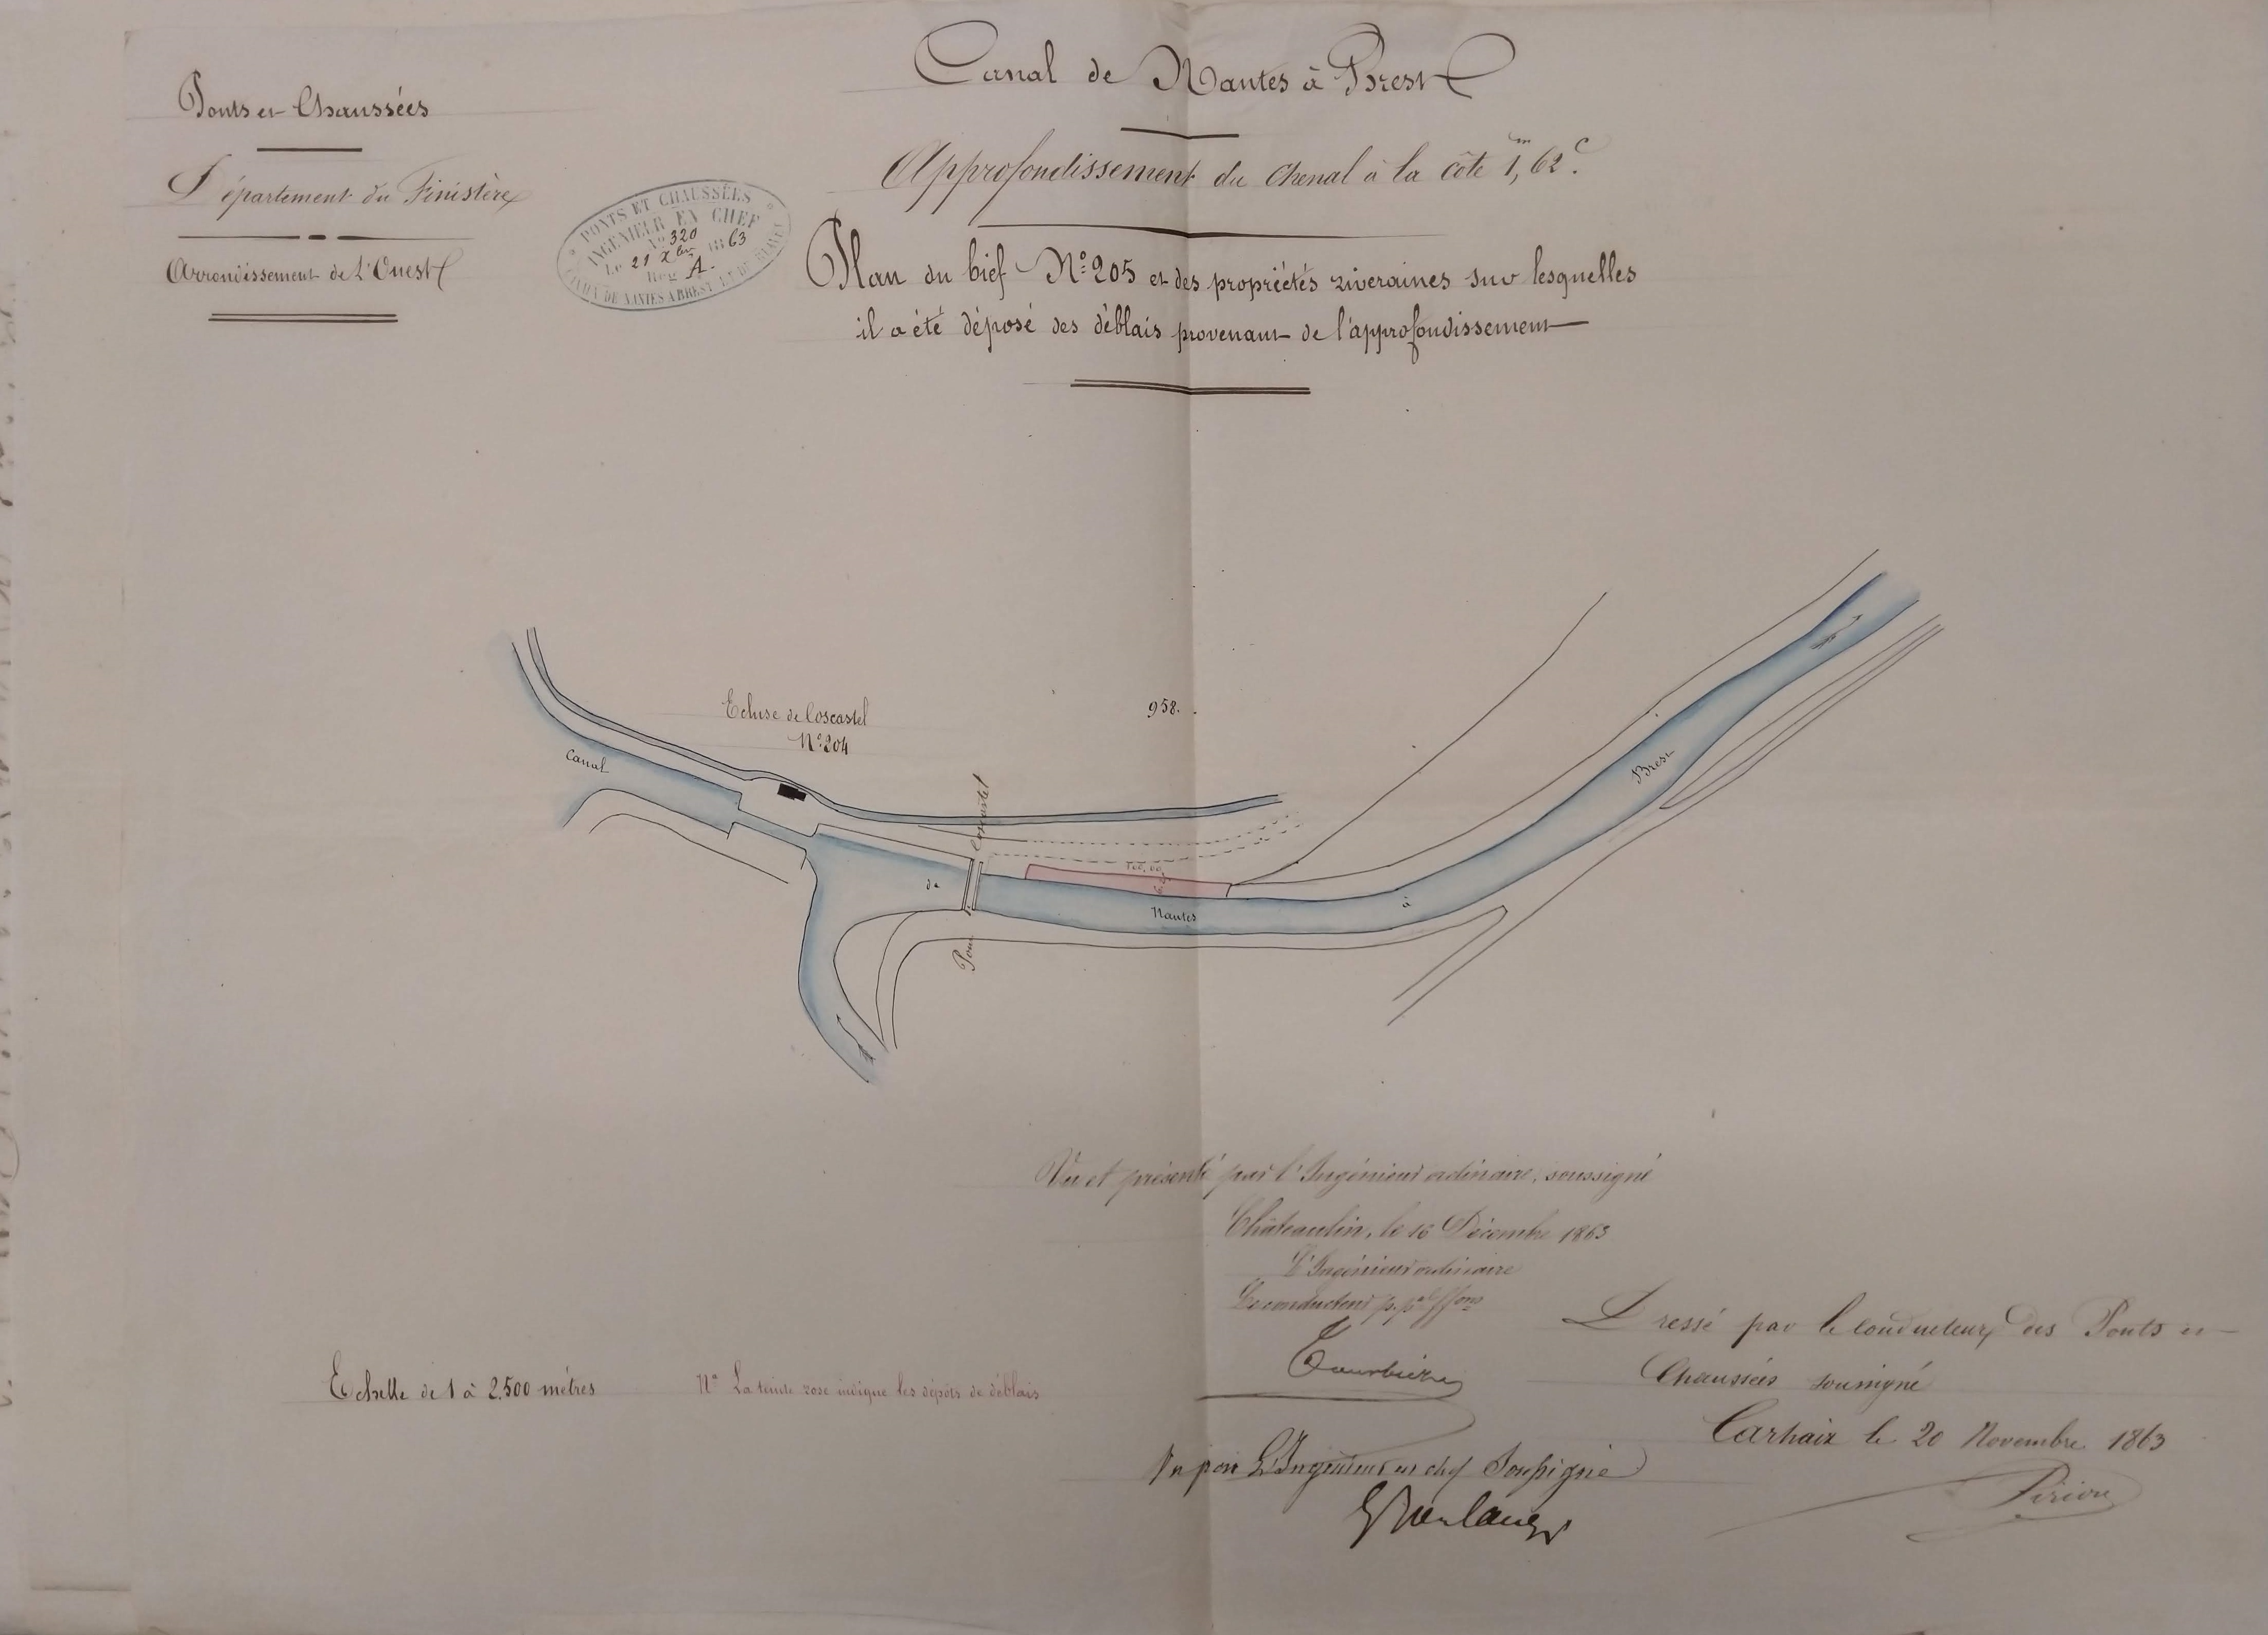 Ponts et Chaussées
Département du Finistère
Arrondissement de l'Ouest
PONTS ET CHAUSSÉES
INGÉNIEUR EN CHEF
No 320
Le 21 Xbre 1863
Reg. A.
CANAL DE NANTES A BREST
Canal de Nantes à Brest
Approfondissement du chenal à la côte 1,m 62c.
Plan du bief No 205 et des propriétés riveraines sur lesquelles
il a été déposé des déblais provenant de l'approfondissement
Ecluse de Coscastel
No 204
958.
Canal
de
Nantes
à
Brest
Pont Coscastel
Vu et présenté par l'Ingénieur ordinaire, soussigné
Châteaulin, le 16 Décembre 1863
L'Ingénieur ordinaire
Le conducteur
Dressé par le conducteur des Ponts et
Chaussées soussigné
Carhaix le 20 Novembre 1863
Pirion
Echelle de 1 à 2.500 mètres
Na La teinte rose indique les dépôts de déblais
Vu par L'Ingénieur en chef Soussigné